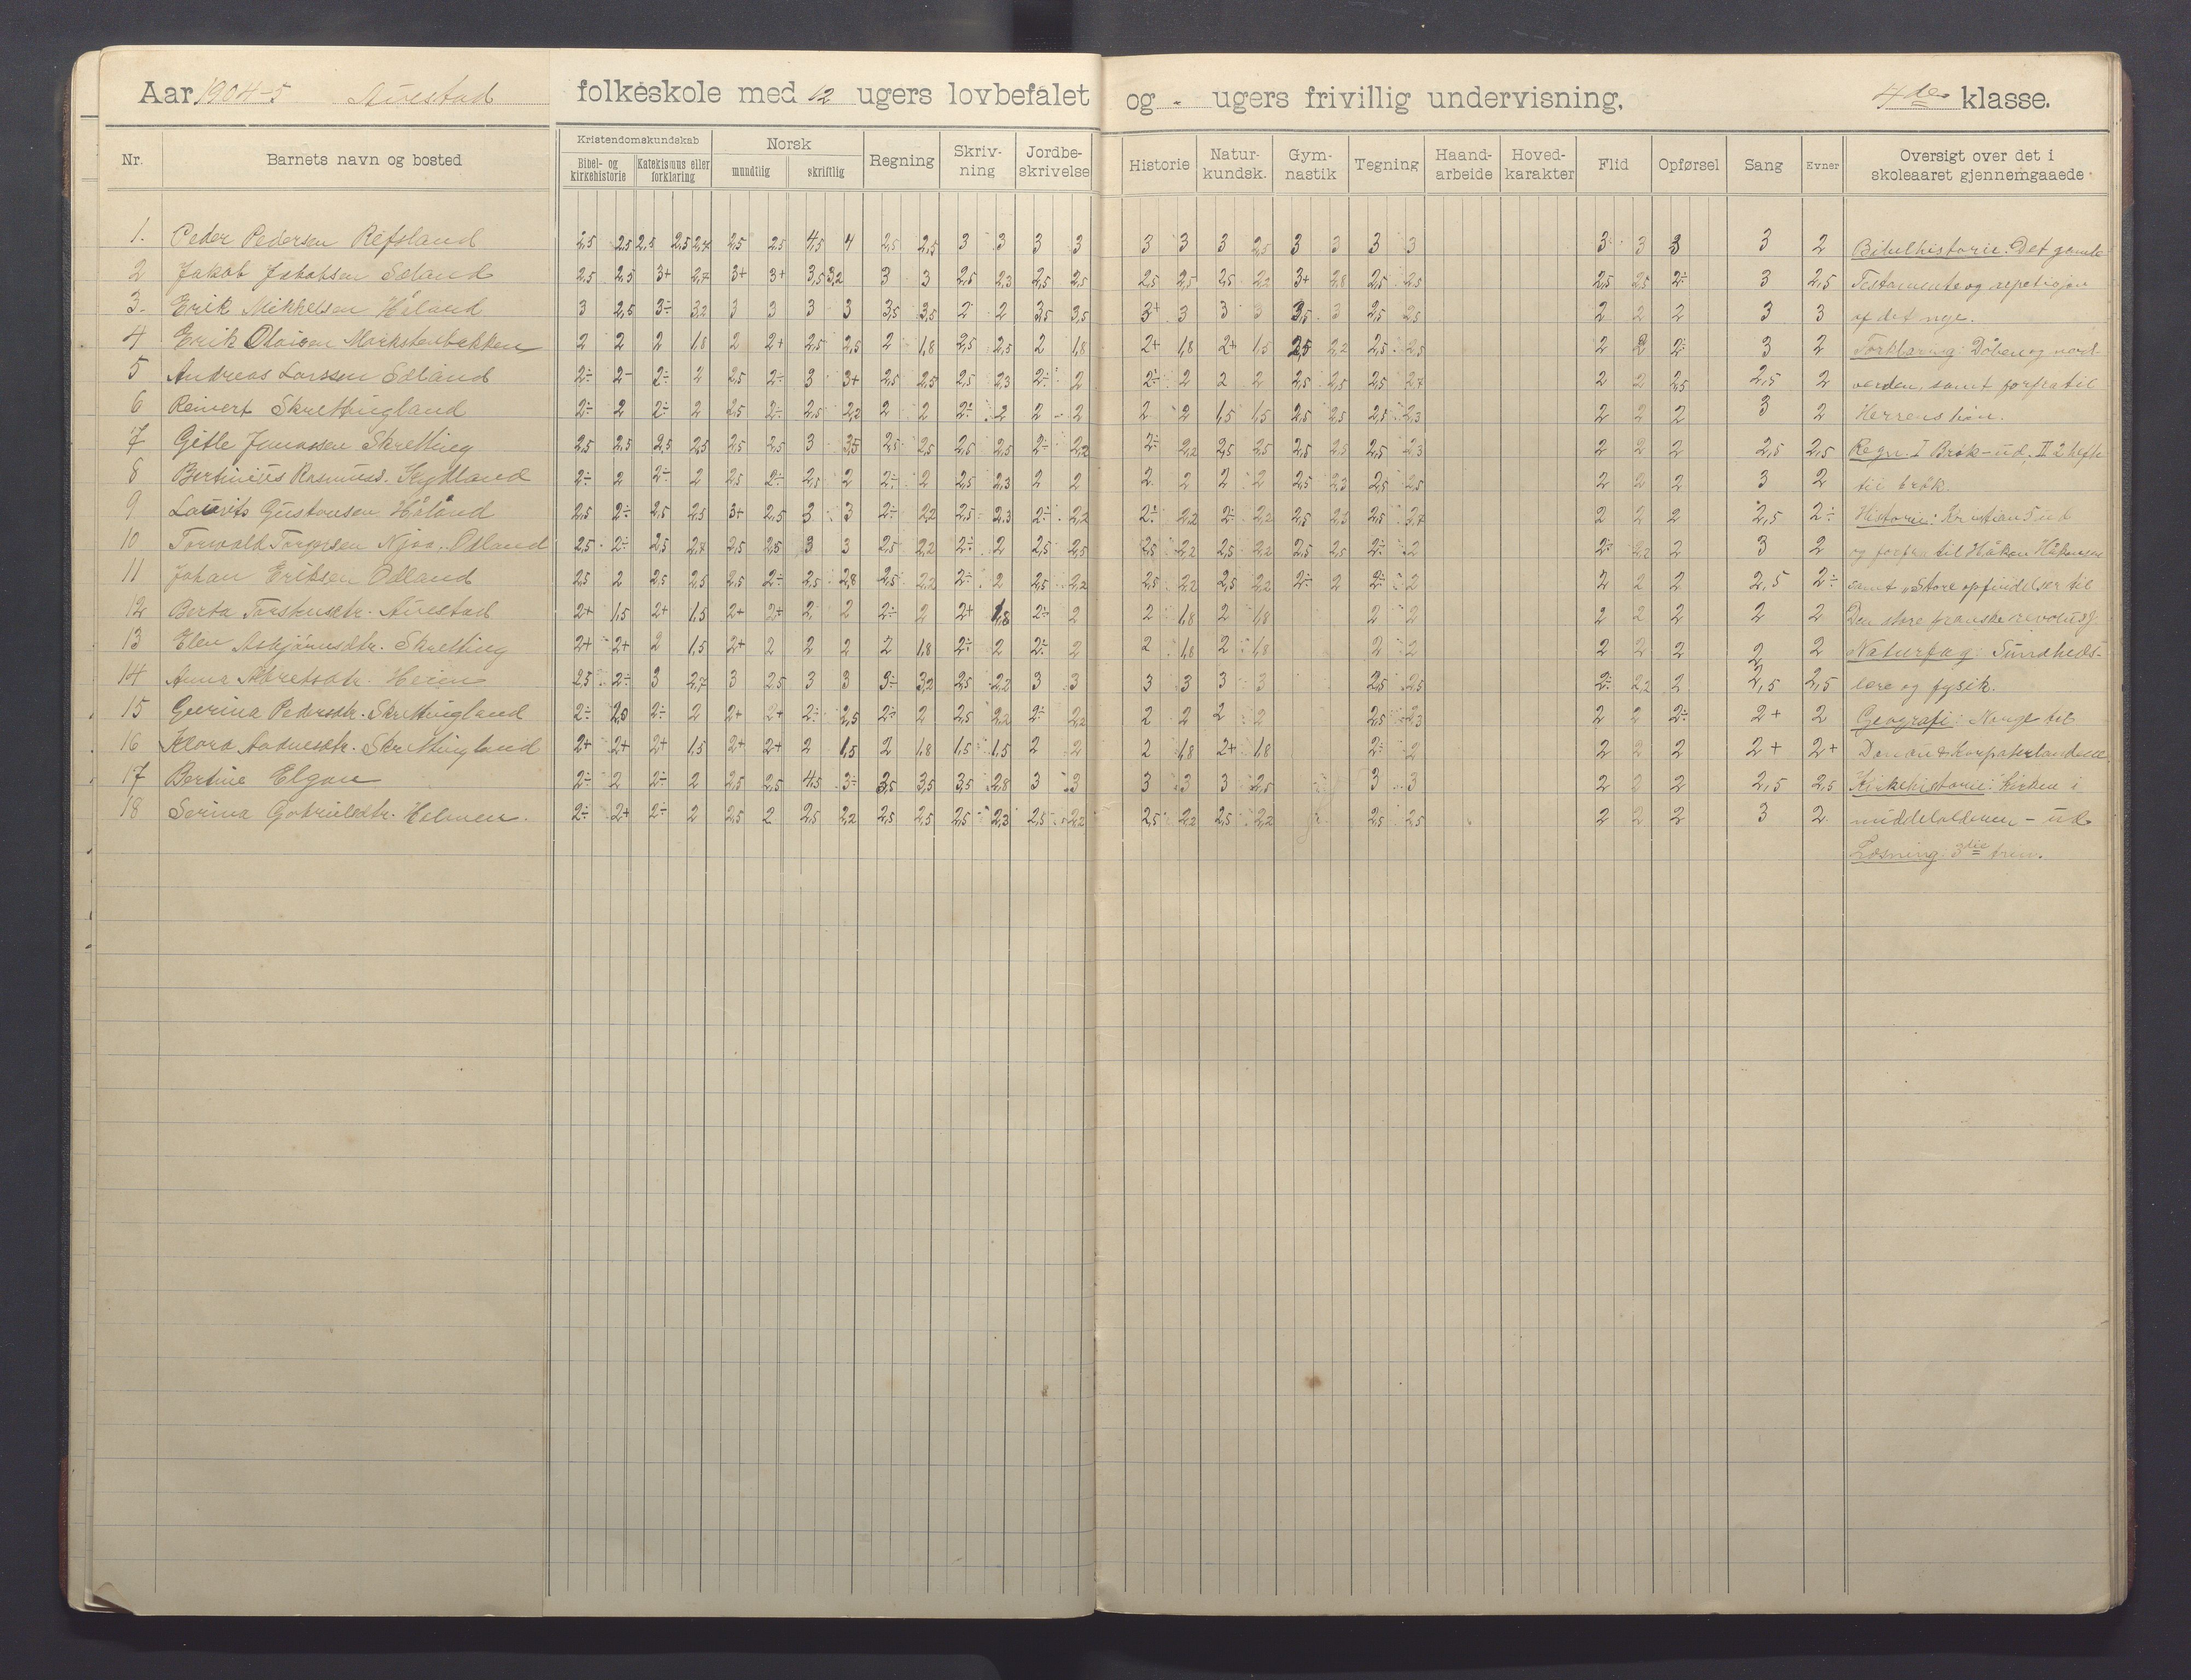 Aar 1904-5 Auestad folkeskole med 12 ugers lovbefalet og - ugers frivillig undervisning, 4de klasse.
Nr. Barnets navn og bosted Kristendomskundskab Bibel- og kirkehistorie Katekismus eller forklaring Norsk mundtlig skriftlig Regning Skriv-ning Jordbe-skrivelse Historie Natur-kundsk. Gym-nastik Tegning Haand-arbeide Hoved-karakter Flid Opførsel Sang Evner Oversigt over det i skoleaaret gjennemgaaede
1. Peder Pedersen Refsland 2,5 2,5 2,5 2,5 2,4 2,5 2,5 4,5 4 2,5 2,5 3 3 3 3 3 3 3 2,5 3 3 3 3 3 3 3 3 2 Bibelhistorie: Det gamle
2 Jakob Jakobsen Sæland 2,5 2,5 3+ 2,7 3+ 3+ 3,5 3,2 3 3 2,5 2,3 2,5 2,5 2,5 2,5 2,5 2,2 3+ 2,8 2,5 2,5 2,5 2,5 2÷ 3 2,5 Testamente og repetisjon
3. Erik Mikkelsen Håland 3 2,5 3÷ 3,2 3 3 3 3 3,5 3,5 2 2 3,5 3,5 3+ 3 3 3 3,5 3 2,5 2,5 2 2 2 3 3 af det nye.
4 Erik Olaisen 2 2 2 1,8 2 2+ 2,5 2,5 2 1,8 2,5 2,5 2 1,8 2+ 1,8 2+ 1,5 2,5 2,2 2,5 2,5 2 2 2÷ 3 2 Forklaring: Dåben og nad-
5 Andreas Larssen Sæland 2÷ 2- 2÷ 2 2,5 2÷ 3 3+ 2,5 2,5 2,5 2,3 2÷ 2 2÷ 2 2 2 2,5 2,5 2,5 2,4 2 2 2,5 2,5 2 verden, samt forfra til
6 Reinert Skrettingland 2÷ 2 2÷ 2 2,5 2÷ 2,5 2,2 2 2 2÷ 2 2 2 2 2 1,5 1,5 2,5 2,5 2,5 2,3 2 2 2 3 2 Herrens bøn.
7 Gitle Jonassen Skretting 2,5 2,5 2,5 2,5 2,5 2,5 3 3,5 2,5 2,5 2,5 2,5 2÷ 2,2 2÷ 2,2 2,5 2,5 2,5 2,5 2,5 2,3 2 2 2 2,5 2,5 Regn. I Brøk-ud. II 2 hefte
8 Bertinius Rasmuss. Kydland 2÷ 2 2÷ 2 2,5 2÷ 2,5 2 2÷ 2 2,5 2,3 2 2 2 2 2 2 2,5 2,3 2,5 2,5 2 2 2 3 2 til brøk.
9 Lauvits Gustavsen Håland 2,5 2÷ 2,5 2,5 3+ 2,5 3 3 2÷ 2,2 2,5 2,3 2÷ 2,2 2÷ 2,2 2÷ 2,2 2,5 2,5 2,5 2,4 2 2 2 2,5 2÷ Historie: Kristian 5 ud
10 Torvald Torgersen Njaa, Ødland 2,5 2÷ 2,5 2,4 2,5 2,5 3 3 2,5 2,2 2÷ 2 2,5 2,5 2,5 2,2 2,5 2,2 2,5 2,5 2÷ 2 2÷ 2,2 2 3 2 og forfra til Håkon Håkonsen
11 Johan Eriksen Ødland 2,5 2 2,5 2,5 2,5 2÷ 2,5 2,8 2,5 2,2 2÷ 2 2,5 2,2 2,5 2,2 2,5 2,2 2÷ 2 2÷ 2 2 2 2 2,5 2÷ samt „Store opfindelser til
12 Berta Torstensdtr. Auestad 2+ 1,5 2+ 1,5 2+ 2+ 2 2 2÷ 2 2+ 1,8 2÷ 2 2 1,8 2 1,8 2 2 2 2 2 2 2 Den store franske revolusj.
13 Elen Asbjørnsdtr. Skretting 2+ 2+ 2 1,5 2+ 2 2 2 2 1,8 2÷ 2 2÷ 2 2 1,8 2 1,8 2 2 2 2 2 2 2 Naturfag: Sundheds-
14 Anna Heien 2,5 2÷ 3 2,7 3 2,5 3 3 3÷ 3,2 2,5 2,2 3 3 3 3 3 3 2,5 2,5 2÷ 2,2 2 2,5 2,5 lære og fysik.
15 Gurina Pedersdtr. Skrettingland 2÷ 2,5 2÷ 2 2+ 2+ 2÷ 2,5 2÷ 2 2,5 2,2 2÷ 2,2 2 2 2 2 2,5 2,3 2 2 2÷ 2+ 2 Geografi: Norge til
16 Klara Aadnesdtr. Skrettingland 2+ 2+ 2+ 1,5 2+ 2+ 2 1,5 2 1,8 1,5 1,5 2 2 2 1,8 2+ 1,8 2÷ 2 2 2 2 2+ 2+ Donau & Karpaterlandene
17 Bertine Elgan 2÷ 2 2÷ 2 2,5 2,5 4,5 3÷ 3,5 3,5 3,5 2,8 3 3 3 3 3 2,5 3 3 2 2 2 2,5 2,5 Kirkehistorie: Kirken i
18 Serina Gabrielsdtr. Holmen. 2÷ 2+ 2÷ 2 2,5 2 2,5 2,2 2,5 2,5 2,5 2,3 2,5 2,2 2,5 2,2 2,5 2,2 2,5 2,5 2 2 2 3 2 middelalderen - ud
Læsning: 3die trin.